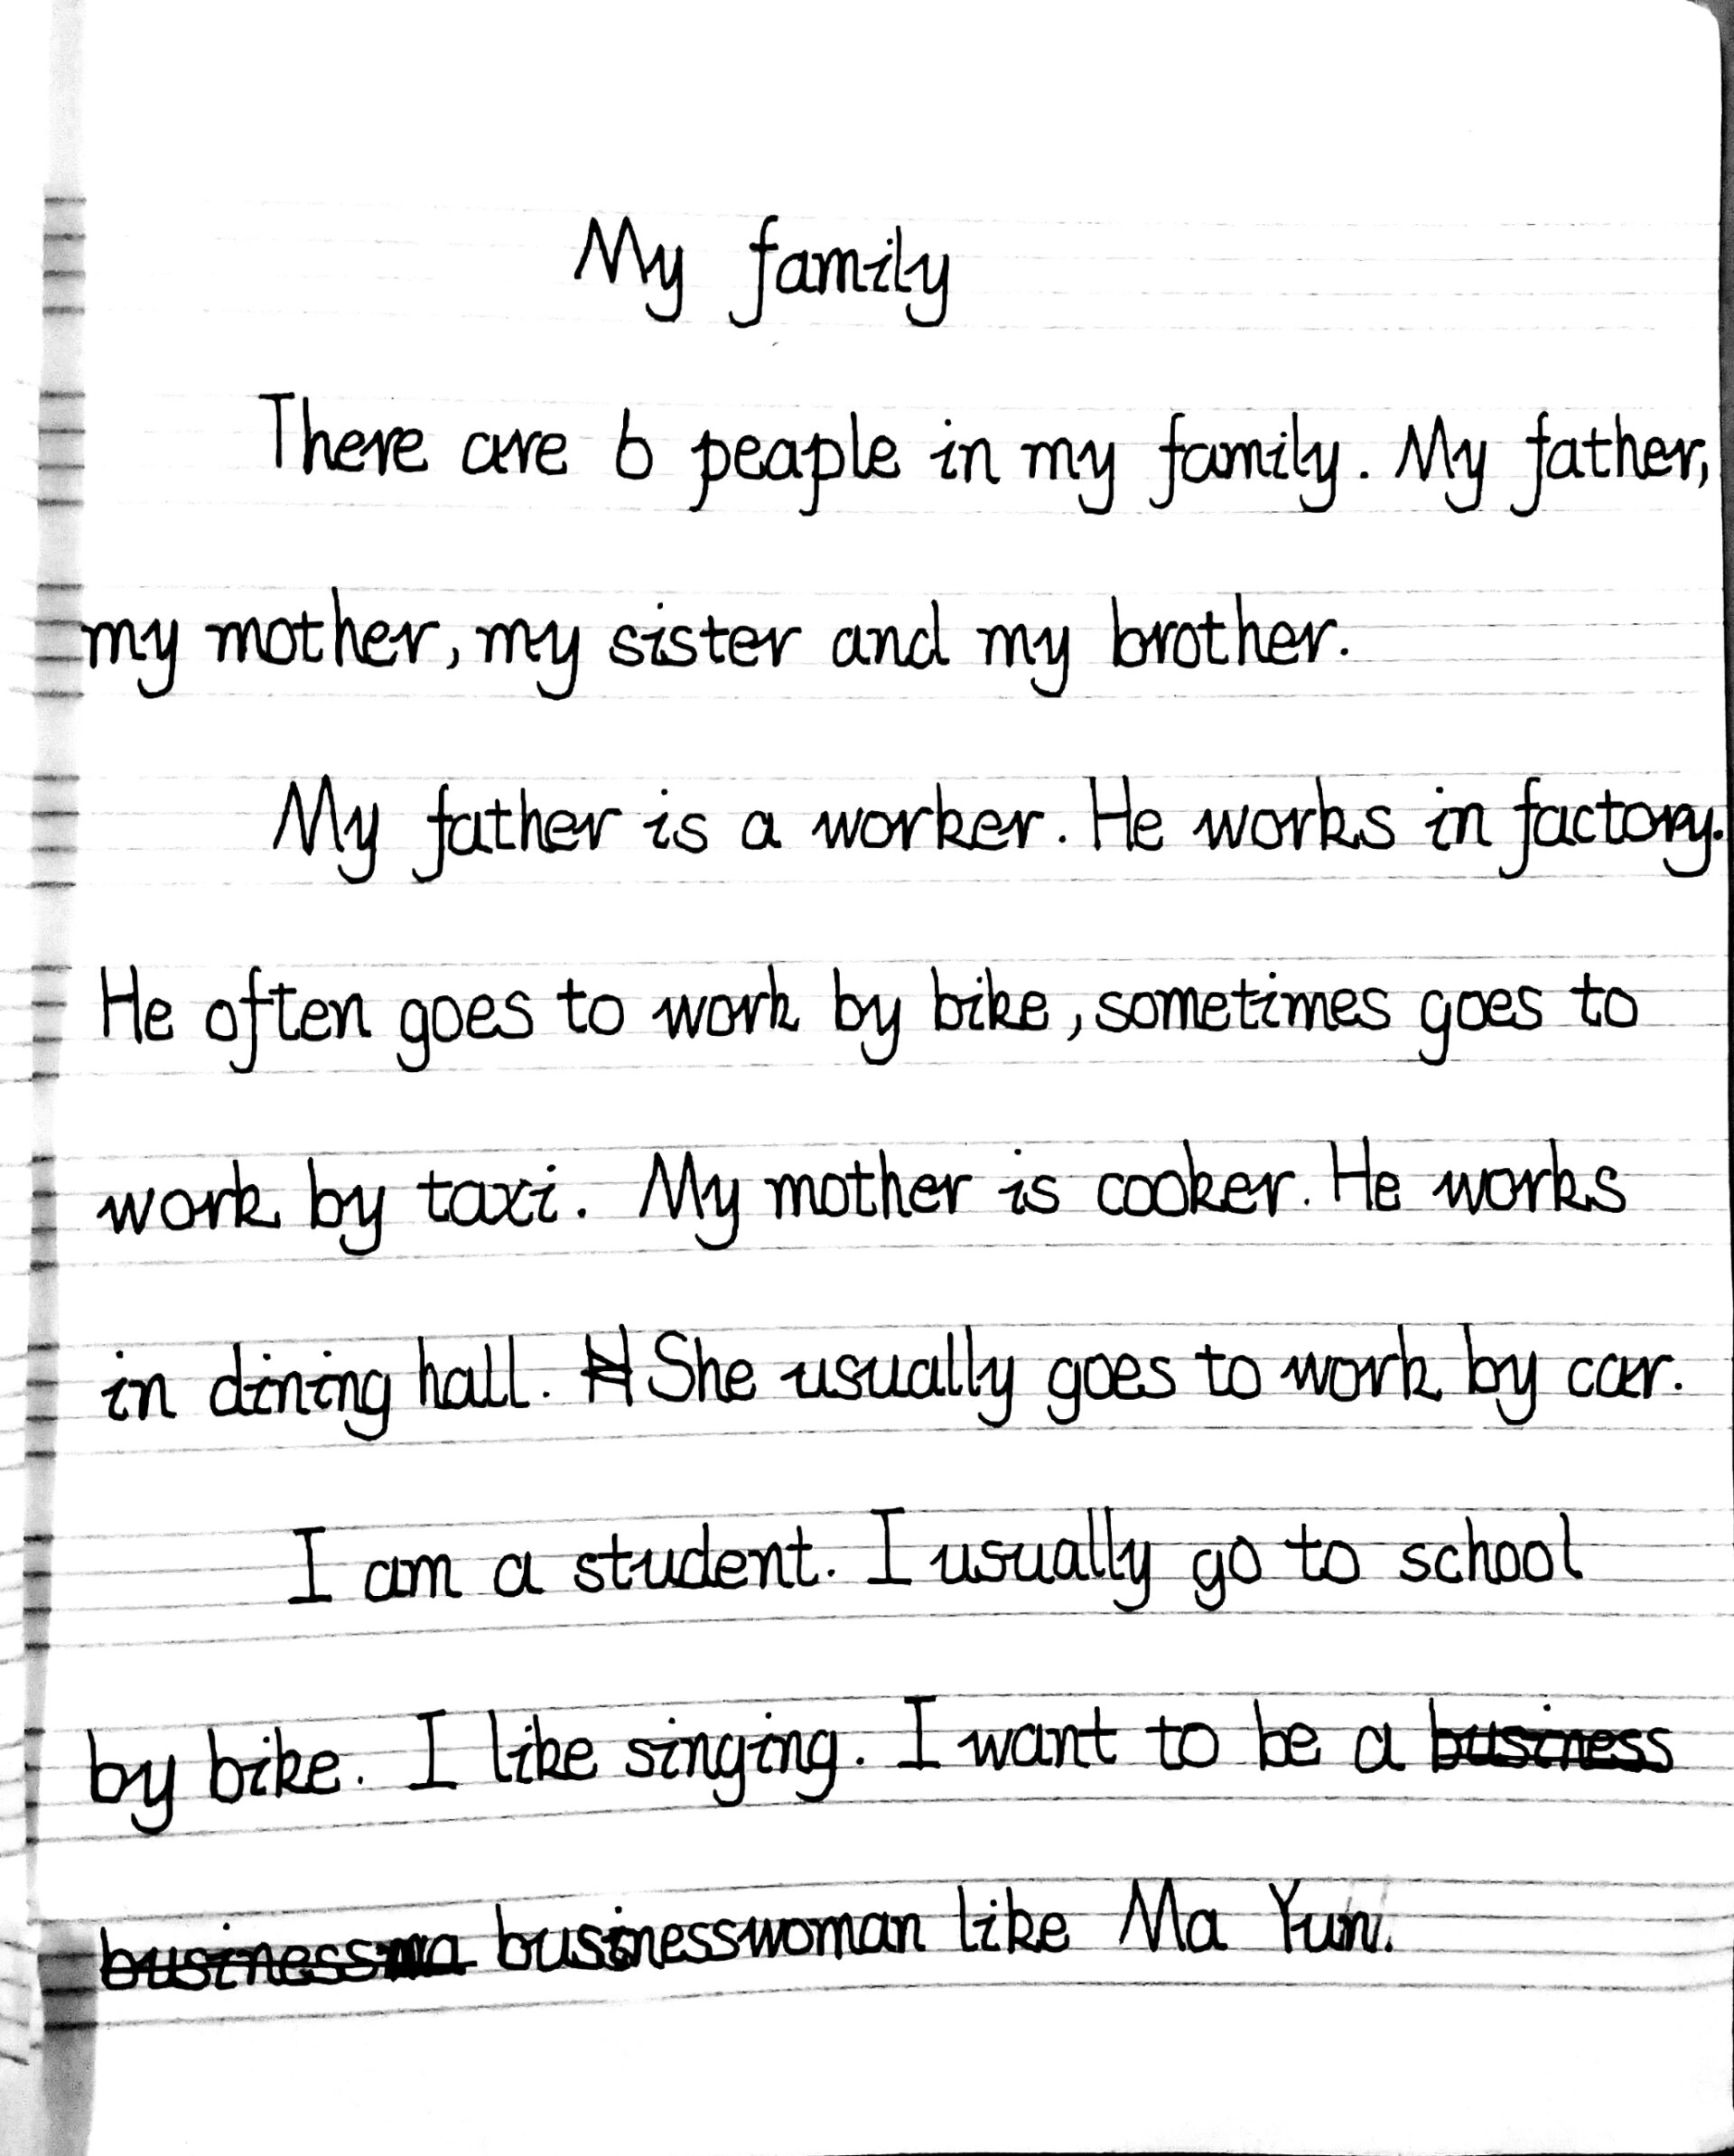 My family
There are 6 peaple in my family. My father,
my mother, my sister and my brother.
My father is a worker. He works in factory.
He often goes to work by bike, sometimes goes to
work by taxi. My mother is cooker. He works
in dining hall. She usually goes to work by car.
I am a student. I usually go to school
by bike. I like singing. I want to be a business
businessma businesswoman like Ma Yun.